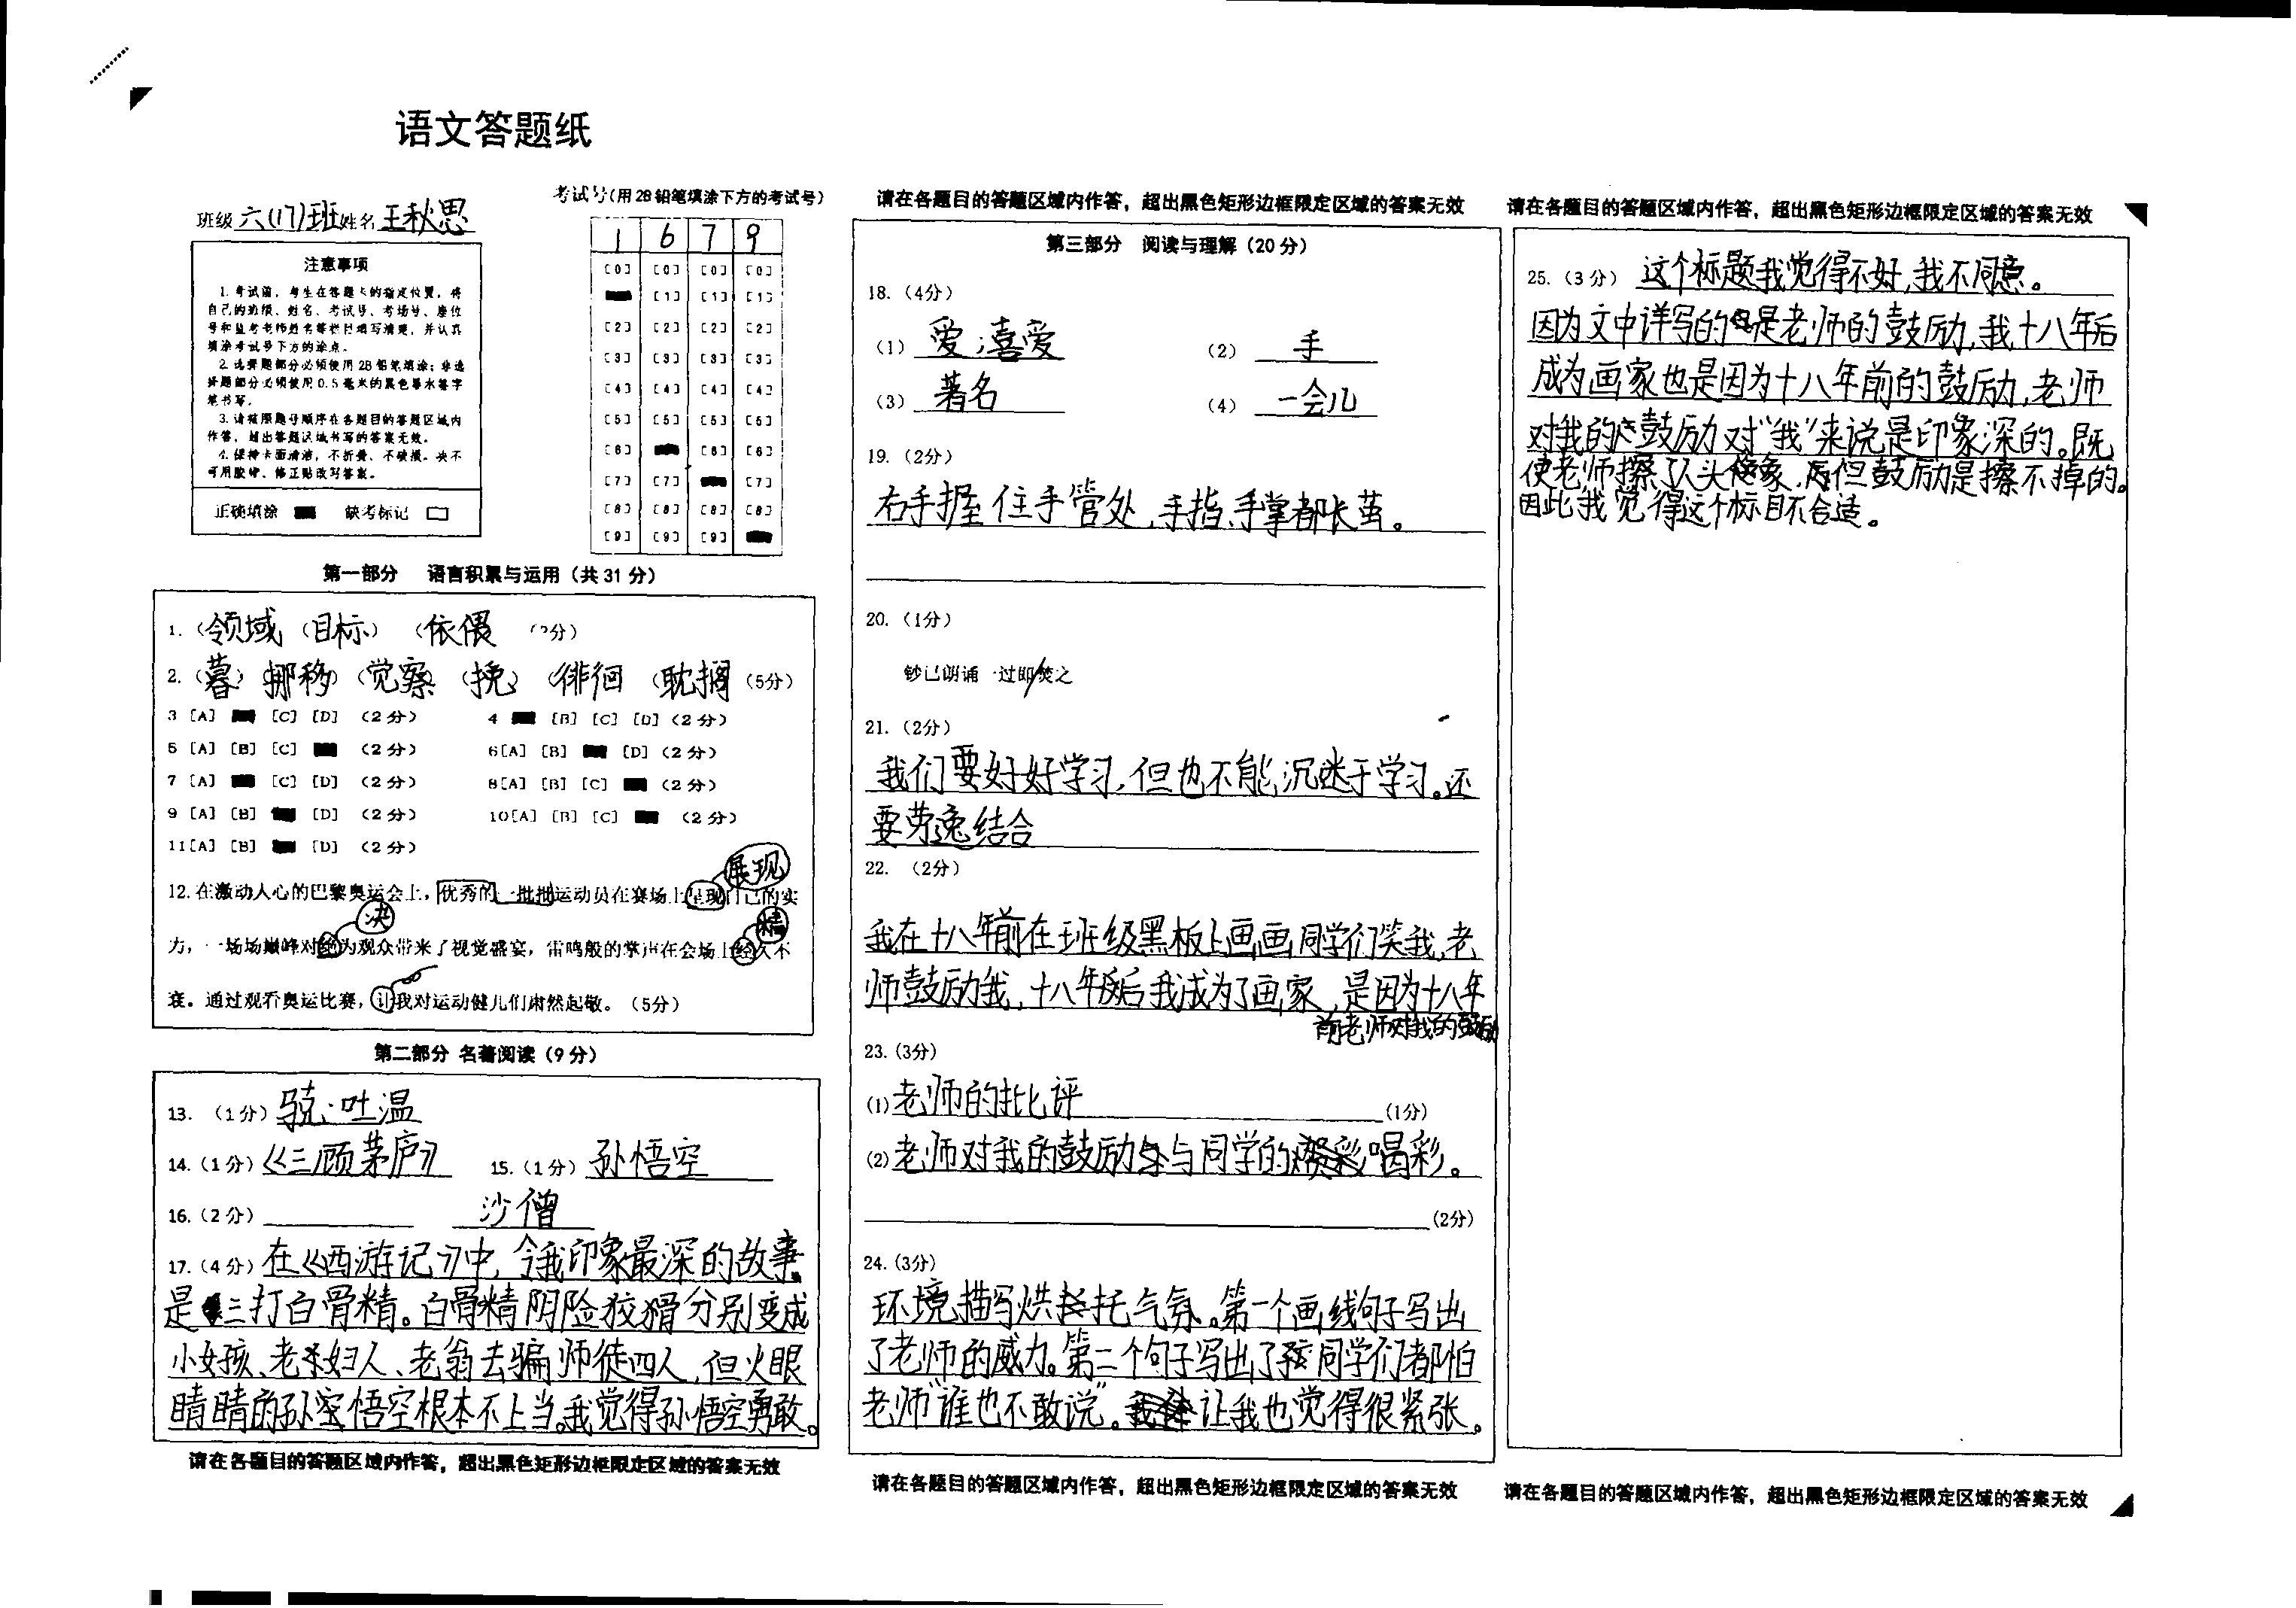 语文答题纸
班级 六(17)班 姓名 王秋思
考试号(用2B铅笔填涂下方的考试号)
1 6 7 9
[0] [0] [0] [0]
[1] [1] [1]
[2] [2] [2] [2]
[3] [3] [3] [3]
[4] [4] [4] [4]
[5] [5] [5] [5]
[6] [6] [6]
[7] [7] [7]
[8] [8] [8] [8]
[9] [9] [9]
注意事项
1. 考试前，考生在答题卡的指定位置，将
自己的班级、姓名、考试号、考场号、座位
号和监考老师姓名等栏目填写清楚，并认真
填涂考试号下方的涂点。
2. 选择题部分必须使用 2B 铅笔填涂；非选
择题部分必须使用 0.5 毫米的黑色墨水签字
笔书写。
3. 请按照题号顺序在各题目的答题区域内
作答，超出答题区域书写的答案无效。
4. 保持卡面清洁，不折叠、不破损。决不
可用胶带、修正贴改写答案。
正确填涂 缺考标记
第一部分 语言积累与运用（共 31 分）
1.（领域（目标）（依偎 分）
2.（暮）挪移）（觉察（挽）（徘徊（耽搁（5分）
3 [A] [C] [D] （2 分） 4 [B] [C] [D]（2 分）
5 [A] [B] [C] （2 分） 6[A] [B] [D]（2 分）
7 [A] [C] [D] （2 分） 8[A] [B] [C] （2 分）
9 [A] [B] [D] （2 分） 10[A] [B] [C] （2 分）
11[A] [B] [D] （2 分）
展现
12. 在激动人心的巴黎奥运会上，优秀的一批批运动员在赛场上呈现自己的实
决
力，一场场巅峰对绝为观众带来了视觉盛宴，雷鸣般的掌声在会场上经久不
衰。通过观看奥运比赛，让我对运动健儿们肃然起敬。（5分）
第二部分 名著阅读（9 分）
13. （1 分）骁·吐温
14.（1 分）《三顾茅庐》 15.（1 分）孙悟空
16.（2 分） 沙僧
17.（4 分）在《西游记》中，令我印象最深的故事
是三打白骨精。白骨精阴险狡猾分别变成
小女孩、老妇人、老翁去骗师徒四人，但火眼
睛睛的孙悟空根本不上当。我觉得孙悟空勇敢。
请在各题目的答题区域内作答，超出黑色矩形边框限定区域的答案无效
请在各题目的答题区域内作答，超出黑色矩形边框限定区域的答案无效
第三部分 阅读与理解（20 分）
18.（4分）
（1）爱；喜爱 （2）手
（3）著名 （4）一会儿
19.（2分）
右手握住手管处，手指、手掌都长茧。
20.（1分）
钞已朗诵一过即/焚之
21.（2分）
我们要好好学习，但也不能沉迷于学习。还
要劳逸结合
22. （2分）
我在十八年前在班级黑板上画画同学们笑我，老
师鼓励我，十八年后我成为了画家，是因为十八年
前老师对我的鼓励
23.（3分）
(1)老师的批评（1分）
(2)老师对我的鼓励与同学的喝彩。
（2分）
24.（3分）
环境描写烘托气氛。第一个画线句子写出
了老师的威力。第二个句子写出了同学们都怕
老师“谁也不敢说”。让我也觉得很紧张。
请在各题目的答题区域内作答，超出黑色矩形边框限定区域的答案无效
请在各题目的答题区域内作答，超出黑色矩形边框限定区域的答案无效
25.（3 分）这个标题我觉得不好，我不同意。
因为文中详写的是老师的鼓励，我十八年后
成为画家也是因为十八年前的鼓励，老师
对我的鼓励对“我”来说是印象深的。既
使老师擦了人头像，但鼓励是擦不掉的。
因此我觉得这个标目不合适。
请在各题目的答题区域内作答，超出黑色矩形边框限定区域的答案无效